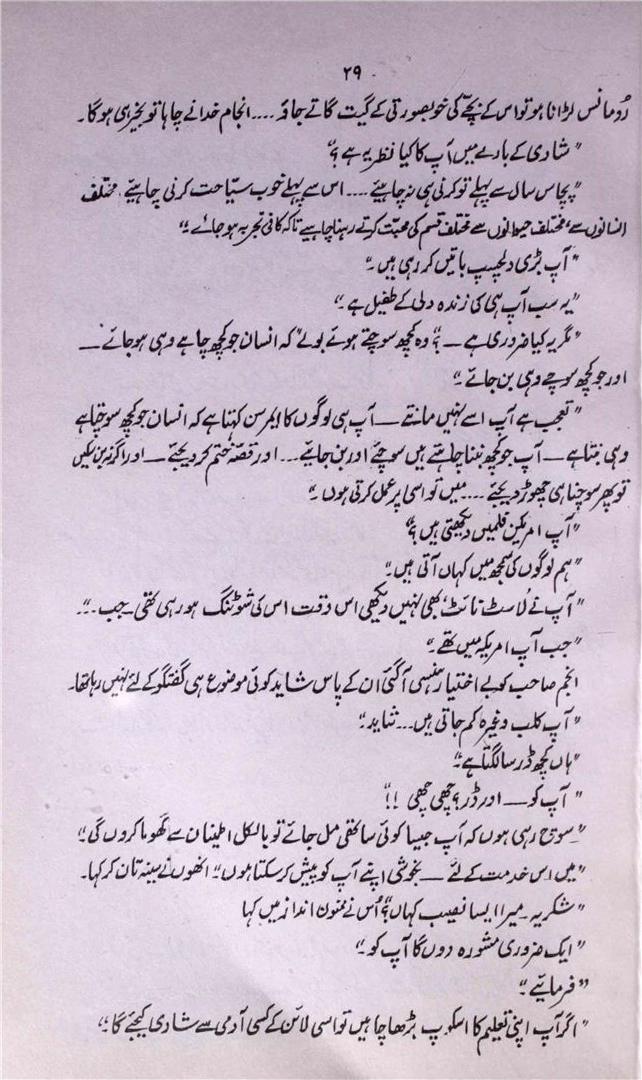 ۲۹
رُومانس لڑانا ہو تو اس کے بچّے کی خوبصورتی کے گیت گاتے جاؤ .... انجام خدانے چاہا تو بخیر ہی ہوگا۔
"شادی کے بارے میں آپ کا کیا نظریہ ہے؟"
"پچاس سال سے پہلے تو کرنی ہی نہ چاہیئے .... اس سے پہلے خوب سیّاحت کرنی چاہیئے مختلف
انسانوں سے، مختلف حیوانوں سے مختلف قسم کی محبّت کرتے رہنا چاہیے تاکہ کافی تجربہ ہو جائے۔"
"آپ بڑی دلچسپ باتیں کر رہی ہیں۔"
"یہ سب آپ ہی کی زندہ دلی کے طفیل ہے۔"
"مگر یہ کیا ضروری ہے ــ ؟" وہ کچھ سوچتے ہوئے بولے "کہ انسان جو کچھ چاہے وہی ہوجائے ــ
اور جو کچھ سوچے وہی بن جائے۔"
"تعجب ہے آپ اسے نہیں مانتے ــ آپ ہی لوگوں کا ایمرسن کہتا ہے کہ انسان جو کچھ سوچتا ہے
وہی بنتا ہے ــ آپ جو کچھ بننا چاہتے ہیں سوچئے اور بن جائیے ... اور قصّہ ختم کر دیجئے ــ اور اگر نہ بن سکیں
تو پھر سوچنا ہی چھوڑ دیجئے .... میں تو اسی پر عمل کرتی ہوں۔"
"آپ امریکن فلمیں دیکھتی ہیں؟"
"ہم لوگوں کی سمجھ میں کہاں آتی ہیں۔"
"آپ نے 'لاسٹ نائٹ' بھی نہیں دیکھی اس وقت اس کی شوٹنگ ہو رہی تھی ۔ جب ..."
"جب آپ امریکہ میں تھے۔"
انجم صاحب کو بے اختیار ہنسی آگئی ان کے پاس شاید کوئی موضوع ہی گفتگو کے لئے نہیں رہا تھا۔
"آپ کلب وغیرہ کم جاتی ہیں ... شاید۔"
"ہاں کچھ ڈر سا لگتا ہے۔"
"آپ کو ــ اور ڈر؟ چھی چھی !!"
"سوچ رہی ہوں کہ آپ جیسا کوئی ساتھی مل جائے تو بالکل اطینان سے گھوما کروں گی۔"
"میں اس خدمت کے لئے ــ بخوشی اپنے آپ کو پیش کر سکتا ہوں" انھوں نے سینہ تان کر کہا۔
"شکریہ ۔ میرا ایسا نصیب کہاں؟" اُس نے ممنون انداز میں کہا
"ایک ضروری مشورہ دوں گا آپ کو۔"
"فرمائیے۔"
"اگر آپ اپنی تعلیم کا اسکوپ بڑھا چاہیں تو اسی لائن کے کسی آدمی سے شادی کیجئے گا۔"